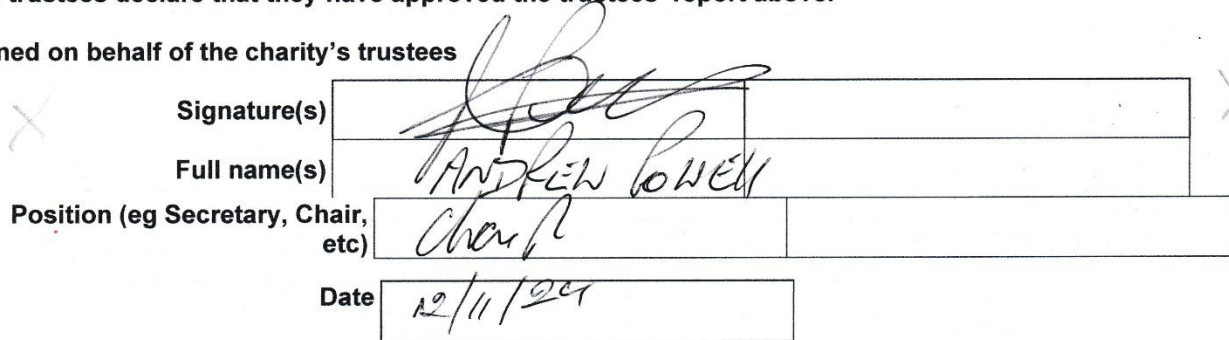 trustees declare that they have approved the trustees' report above.
ned on behalf of the charity's trustees
Signature(s)
Full name(s) ANDREW POWELL
Position (eg Secretary, Chair,
etc) Chair
Date 12/11/24